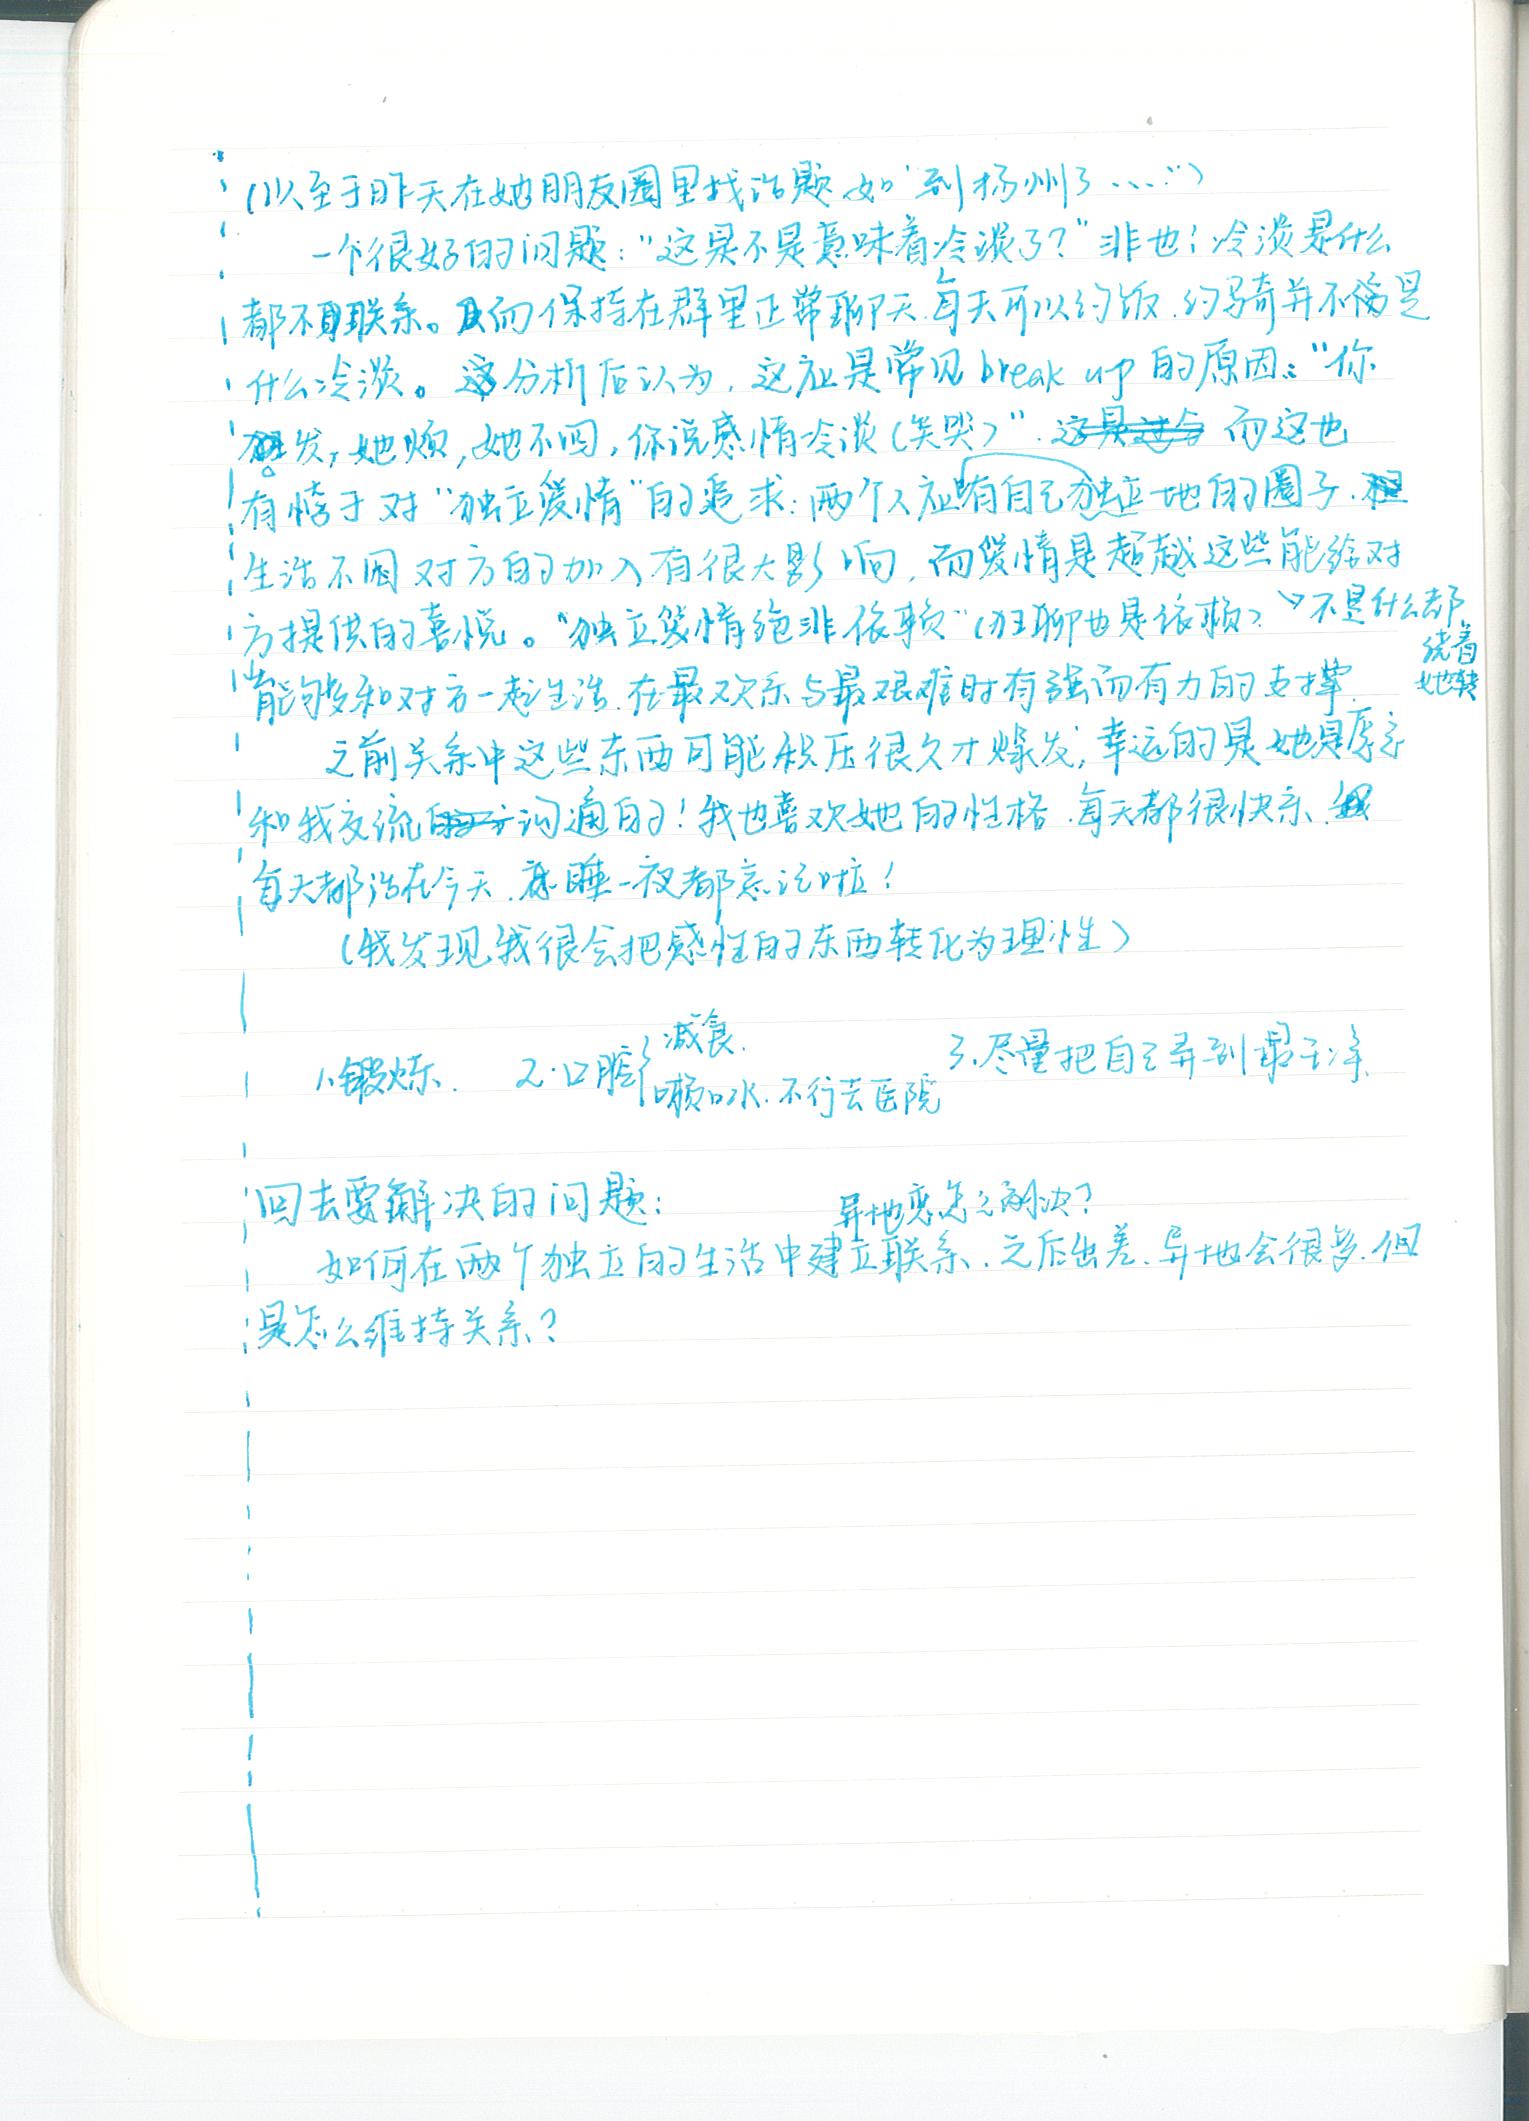 (以至于昨天在她朋友圈里找话题 如"到扬州了....")
一个很好的问题:"这是不是意味着冷淡了?"非也;冷淡是什么
都不联系。而保持在群里正常聊天.每天可以约饭.约骑并不是
什么冷淡。分析后认为,这应是常见break up的原因:"你
发,她烦,她不回,你说感情冷淡(笑哭)".而这也
有悖于对"独立爱情"的追求:两个人应有自己独立地的圈子.
生活不因对方的加入有很大影响,而爱情是超越这些能给对
方提供的喜悦。"独立爱情绝非依赖"(狂聊也是依赖)→不是什么都
绕着
她转
能够和对方一起生活.在最欢乐与最艰难时有强而有力的支撑.
之前关系中这些东西可能积压很久才爆发;幸运的是她是愿意
和我交流沟通的!我也喜欢她的性格.每天都很快乐.
每天都活在今天.睡一夜都忘记啦!
(我发现我很会把感性的东西转化为理性)
减食.
1.锻炼. 2.口腔{ 3.尽量把自己弄到最干净.
漱口水.不行去医院
回去要解决的问题: 异地恋怎么解决?
如何在两个独立的生活中建立联系.之后出差.异地会很多.但
是怎么维持关系?